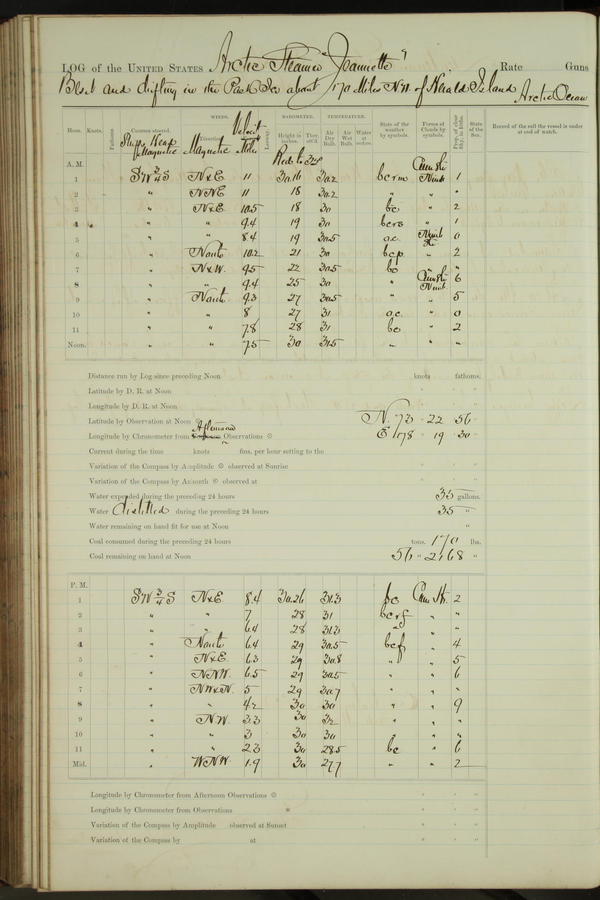 LOG of the UNITED STATES Arctic Steamer "Jeannette" Rate Guns
Beset and drifting in the Pack Ice about 170 Miles N.W. of Herald Island Arctic Ocean
Hour. Knots. Fathoms. Courses steered. WINDS. Leeway. BAROMETER. TEMPERATURE. State of the weather by symbols. Forms of Clouds by symbols. Prop. of clear Sky, in 10ths. State of the Sea. Record of the sail the vessel is under at end of watch.
Ship's Head Magnetic Direction Magnetic Velocity Miles Height in inches. Ther. att'd. Air Dry Bulb. Air Wet Bulb. Water at surface.
A. M. Reds to 32°
1 SW 3/4 S N & E 11 30.16 30.2 bcrm Cum Str Nimb 1
2 " NNE 11 18 30.2 " " "
3 " N & E 10.5 18 30 bc " 2
4 " " 9.4 19 30 bcrs " 1
5 " " 8.4 19 30.5 o.c. Nimb Str 0
6 " North 10.2 21 30 bcp " 2
7 " N & W. 9.5 22 30.5 bc " "
8 " " 9.4 25 30 " Cum Str Nimb 6
9 " North 9.3 27 30.5 " " 5
10 " " 8 27 31 o.c. " 0
11 " " 7.8 28 31 bc " 2
Noon. " " 7.5 30 31.5 " " "
Distance run by Log since preceding Noon knots fathoms.
Latitude by D. R. at Noon
Longitude by D. R. at Noon
Latitude by Observation at Noon N. 73 22 56
Longitude by Chronometer from Afternoon Observations E 178 19 30
Current during the time knots fms. per hour setting to the
Variation of the Compass by Amplitude observed at Sunrise
Variation of the Compass by Azimuth observed at
Water expended during the preceding 24 hours 35 gallons.
Water distilled during the preceding 24 hours 35 "
Water remaining on hand fit for use at Noon "
Coal consumed during the preceding 24 hours tons. 170 lbs.
Coal remaining on hand at Noon 56 " 2168 "
P. M.
1 SW 3/4 S N & E 8.4 30.26 31.3 bc Cum Str. 2
2 " " 7 28 31 bcrf " "
3 " " 6.4 28 31.3 " " "
4 " North 6.4 29 30.5 bcf " 4
5 " N & E 6.3 29 30.8 " " 5
6 " NNW. 6.5 29 30.5 " " 6
7 " NW & N. 5 29 30.7 " " "
8 " " 4.2 30 30 " " 9
9 " NW. 3.3 30 32 " " "
10 " " 3 30 30 " " "
11 " " 2.3 30 28.5 bc " 6
Mid. " WNW. 1.9 30 27.7 " " 2
Longitude by Chronometer from Afternoon Observations
Longitude by Chronometer from Observations
Variation of the Compass by Amplitude observed at Sunset
Variation of the Compass by at